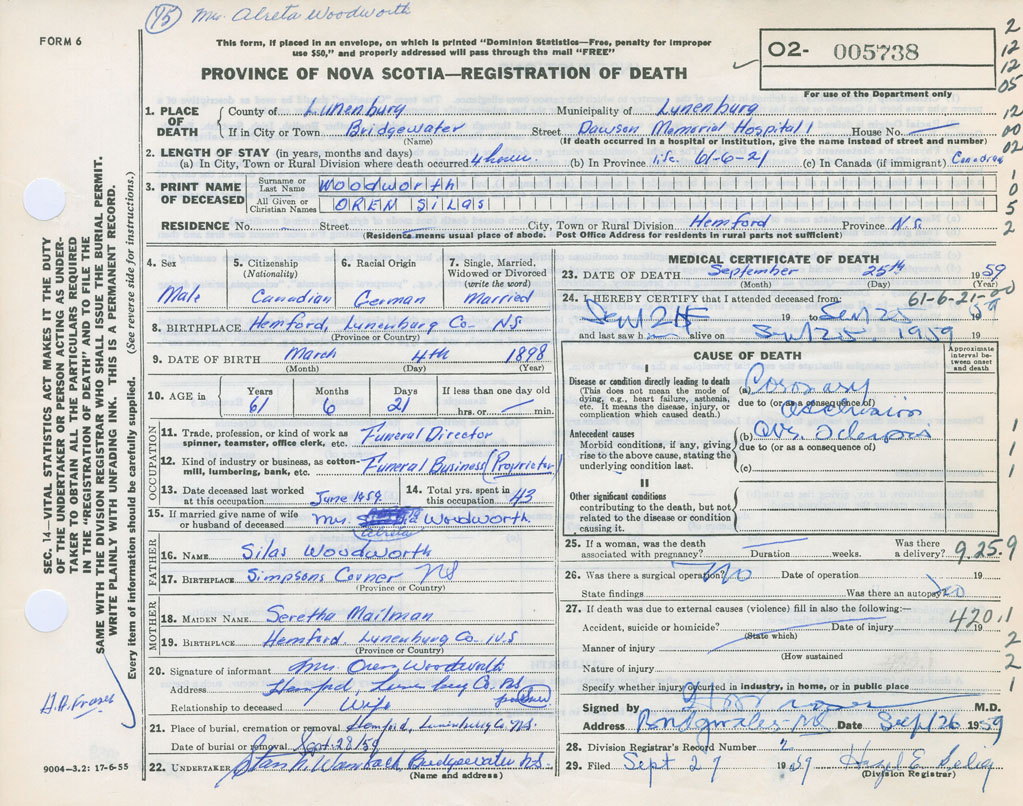 75 Mrs. Alreta Woodworth
FORM 6
This form, if placed in an envelope, on which is printed "Dominion Statistics—Free, penalty for improper
use $50," and properly addressed will pass through the mail "FREE"
PROVINCE OF NOVA SCOTIA—REGISTRATION OF DEATH
O2- 005738
For use of the Department only
2
12
12
05
12
00
02
1
0
5
2
1. PLACE OF DEATH
County of Lunenburg Municipality of Lunenburg
If in City or Town Bridgewater Street Dawson Memorial Hospital 1 House No. —
(Name) (If death occurred in a hospital or institution, give the name instead of street and number)
2. LENGTH OF STAY (in years, months and days)
(a) In City, Town or Rural Division where death occurred 4 hours. (b) In Province life 61-6-21 (c) In Canada (if immigrant) Canadian
3. PRINT NAME OF DECEASED
Surname or Last Name Woodworth
All Given or Christian Names OREN SILAS
RESIDENCE No. Street City, Town or Rural Division Hemford Province N.S.
(Residence means usual place of abode. Post Office Address for residents in rural parts not sufficient)
4. Sex Male
5. Citizenship (Nationality) Canadian
6. Racial Origin German
7. Single, Married, Widowed or Divorced (write the word) Married
8. BIRTHPLACE Hemford, Lunenburg Co. N.S.
(Province or Country)
9. DATE OF BIRTH March 4th 1898
(Month) (Day) (Year)
10. AGE in Years 61 Months 6 Days 21 If less than one day old
hrs. or — min.
OCCUPATION
11. Trade, profession, or kind of work as spinner, teamster, office clerk, etc. Funeral Director
12. Kind of industry or business, as cotton-mill, lumbering, bank, etc. Funeral Business (Proprietor)
13. Date deceased last worked at this occupation June 1959
14. Total yrs. spent in this occupation 43
15. If married give name of wife or husband of deceased Mrs. Alreta Woodworth
FATHER
16. NAME Silas Woodworth
17. BIRTHPLACE Simpsons Corner NS
(Province or Country)
MOTHER
18. MAIDEN NAME Seretha Mailman
19. BIRTHPLACE Hemford, Lunenburg Co. N.S
(Province or Country)
20. Signature of informant Mrs. Oren Woodworth
Address Hemford, Lunenburg Co. N.S.
Relationship to deceased Wife
21. Place of burial, cremation or removal Hemford, Lunenburg Co. N.S.
Date of burial or removal Sept. 28/59
22. UNDERTAKER Bridgewater N.S.
(Name and address)
MEDICAL CERTIFICATE OF DEATH
23. DATE OF DEATH September 25th 1959
(Month) (Day) (Year)
61-6-21-
24. I HEREBY CERTIFY that I attended deceased from:
Sept 25 19 to Sept 25 19 59
and last saw h alive on Sept 25, 1959 19
CAUSE OF DEATH
Approximate interval between onset and death
I
Disease or condition directly leading to death
(This does not mean the mode of dying, e.g., heart failure, asthenia, etc. It means the disease, injury, or complication which caused death.)
(a) Coronary
due to (or as a consequence of)
Occlusion
Antecedent causes
Morbid conditions, if any, giving rise to the above cause, stating the underlying condition last.
(b) Sclerosis
due to (or as a consequence of)
(c)
II
Other significant conditions
contributing to the death, but not related to the disease or condition causing it.
1
1
1
25. If a woman, was the death associated with pregnancy? Duration weeks. Was there a delivery? 9.25.9
26. Was there a surgical operation? No Date of operation 19
State findings Was there an autopsy? No
27. If death was due to external causes (violence) fill in also the following:—
420.1
Accident, suicide or homicide? Date of injury 19
(State which)
Manner of injury
(How sustained
Nature of injury
Specify whether injury occurred in industry, in home, or in public place
1
2
2
1
Signed by M.D.
Address Bridgewater NS Date Sept 26 1959
28. Division Registrar's Record Number
29. Filed Sept 27 1959 Hazel E. Selig
(Division Registrar)
SEC. 14—VITAL STATISTICS ACT MAKES IT THE DUTY
OF THE UNDERTAKER OR PERSON ACTING AS UNDER-
TAKER TO OBTAIN ALL THE PARTICULARS REQUIRED
IN THE "REGISTRATION OF DEATH" AND TO FILE THE
SAME WITH THE DIVISION REGISTRAR WHO SHALL ISSUE THE BURIAL PERMIT.
WRITE PLAINLY WITH UNFADING INK. THIS IS A PERMANENT RECORD.
Every item of information should be carefully supplied. (See reverse side for instructions.)
9004—3.2: 17-6-55